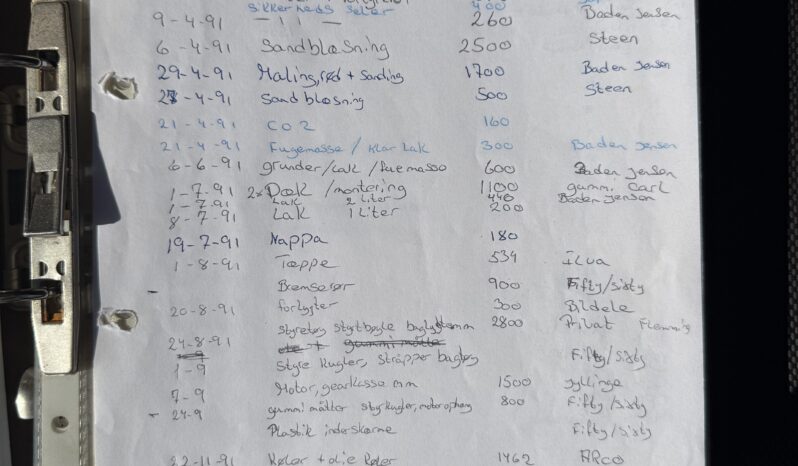 Sikkerheds seler 400
9-4-91 — 11 — 260 Baden Jensen
6-4-91 Sandblæsning 2500 Steen
29-4-91 Maling, rød + Sanding 1700 Baden Jensen
-4-91 Sandblæsning 500 Steen
21-4-91 CO2 160
21-4-91 Fugemasse / Klar Lak 300 Baden Jensen
6-6-91 grunder/Lak/fuemasso 600 Baden Jensen
1-7-91 2x Dæk /montering 1100 gummi Carl
1-7.91 Lak 2 Liter 440 Baden Jenson
8-7-91 Lak 1 Liter 200
19-7-91 Nappa 180
1-8-91 Tæppe 534 Ilva
- Bremserør 900 Fifty/sixty
20-8-91 forlygter 300 Bildele
24-8-91 styretøj styrtbøjle 2800 Privat Flemmig
1-9 Styre kugler, stråpper Fifty/sixty
7-9 Motor, gearkasse mm 1500 Jyllinge
- 24-9 gummi måtter styrkugler, motorophæng 800 Fifty/sixty
Plastik inderskærme Fifty/sixty
22-11-91 Køler + olie køler 1462 ARco